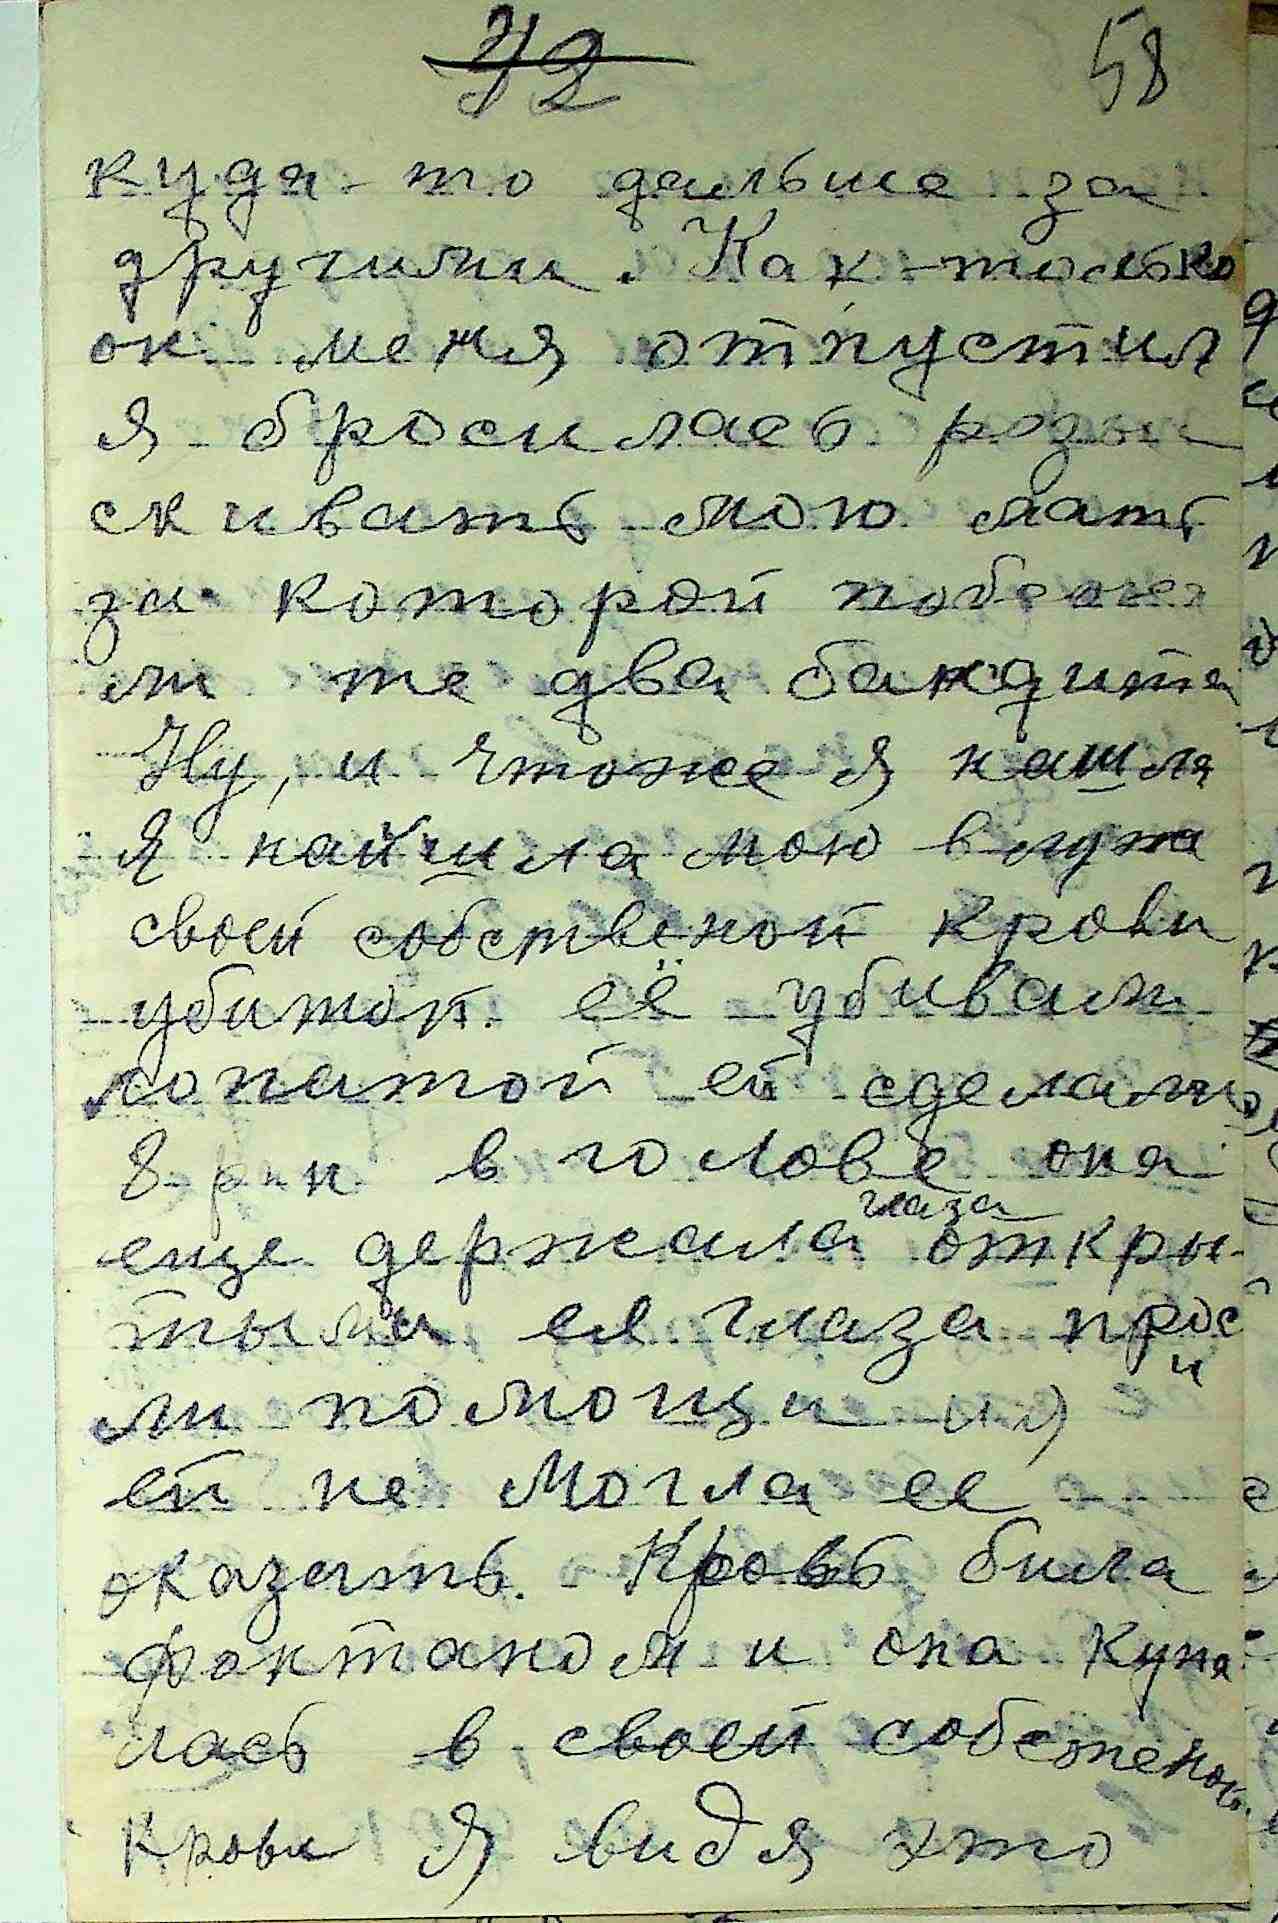 42 58
куда-то дальше за
другими. Как-только
он меня отпустил
я бросилась розы
скивать мою мать
за которой побежа
ли те два бандита
Ну, и чтоже я нашла
Я найшла мою в луже
своей собственой крови
убитой. её убивали
лопатой ей сделали
8 ран в голове она
еще держала глаза откры-
тыми ея глаза проси
ли помощи и я
ей не могла ее
оказать. Кровь била
фонтаном и она купа
лась в своей собственой
крови Я видя это